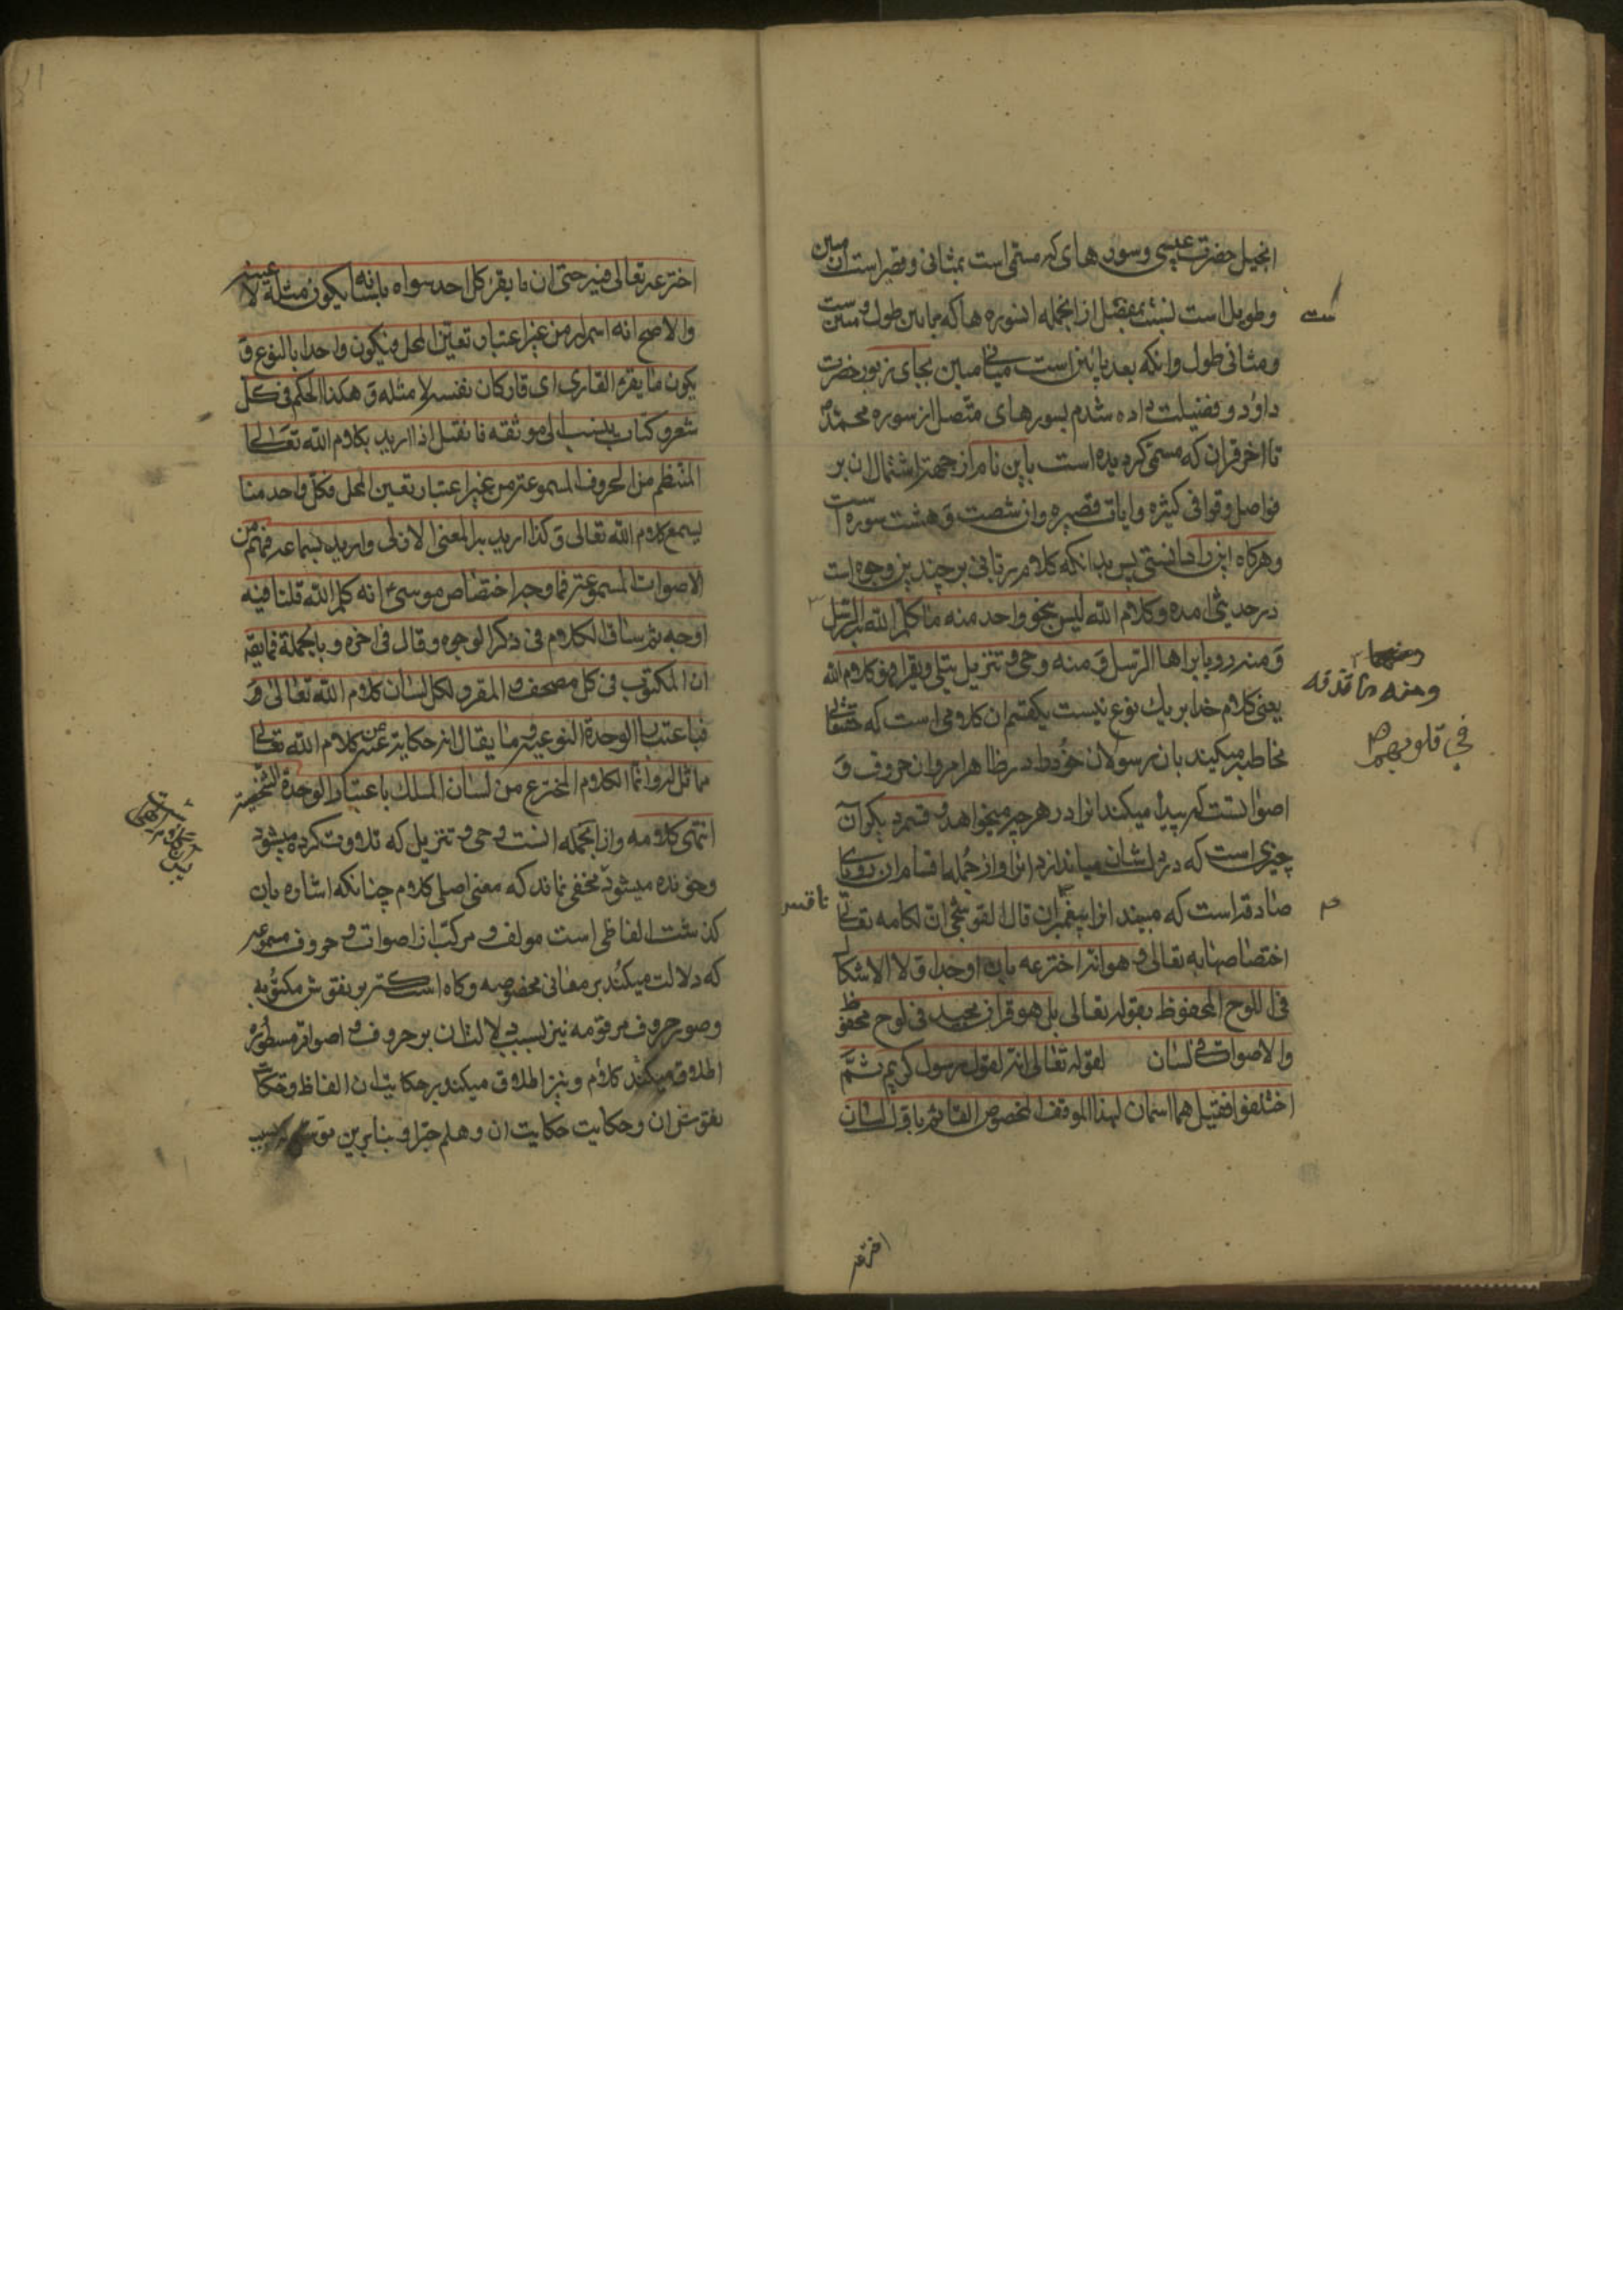 انجیل حضرت عیسی و سوره های که مسمی است بمثانی و قصیر است ازان مبین
و طویل است نسبت بمفصل از انجمله انسوره ها که مابین طول و مبین ست
و مثانی طول وانکه بعد باینن است میانی مبین بجای زبور حضرت
داود و فضیلت داده شدم بسورهای متصل از سوره محمد ص
تا اخر قران که مسمی کردیده است باین نام از جهة اشتمال ان بر
فواصل و قوافی کثیره و ایات قصیره وان شصت و هشت سوره است
و هرکاه این را دانستی پس بدانکه کلام ربانی بر چندین وجوه است
در حدیثی امده و کلام الله لیس بنحو واحد منه ما کلم الله به الرسل
و منه رویا یراها الرسل و منه وحی و تنزیل یتلی و یقرا فهو کلام الله
یعنی کلام خدا بر یك نوع نیست یکقسم ان کلامی است که حقتعالی
مخاطبه میکیند بان رسولان خود را در ظاهر امر وان حروف و
اصواتست که پیدا میکند انرا در هر چیز میخواهد و قسم دیکر آن
چیزی است که در دلشان میاندازد انرا و از جمله اقسام ان رویای
صادقه است که میبیند انرا پیغمبران قال القوشجی ان لکلامه تعالی
اختصاصا به تعالی و هو انه اخترعه بان اوجد اولا الاشکال
فی اللوح المحفوظ بقوله تعالی بل هو قران مجید فی لوح محفوظ
و الاصوات فی لسان لقوله تعالی انه لقول رسول کریم ثم
اختلفوا فقیل هما اسمان لهذا المولف المخصوص القائم باول لسان
ست
ومنه ما قذفه
فی قلوبهم
م
اخترعه
اخترعه تعالی فیه حتی ان ما یقرء کل احد سواه بلسانه یکون مثله لا عینه
والاصح انه اسم له من غیر اعتبار تعین المحل فیکون واحدا بالنوع و
یکون ما یقرء القاری ای قار کان نفسه لا مثله و هکذا الحکم فی کل
شعر و کتاب ینسب الی مولفه فان قیل اذا ارید بکلام الله تعالی
المنتظم من الحروف المسموعة من غیر اعتبار تعین المحل فکل واحد منا
یسمع کلام الله تعالی و کذا ارید به المعنی الازلی وارید بسماعه فهمه من
الاصوات المسموعة فما وجه اختصاص موسی انه کلیم الله قلنا فیه
اوجه ثم ساق الکلام فی ذکر الوجوه و قال فی اخره و بالجملة فما یقه
ان المکتوب فی کل مصحف و المقرو لکل لسان کلام الله تعالی و
فباعتبار الوحدة النوعیة و ما یقال انه حکایة عن کلام الله تعالی
مماثل له وانما الکلام المخترع من لسان الملك باعتبار الوحدة الشخصیة
انتهی کلامه و از انجمله انست وحی و تنزیل که تلاوت کرده میشود
وخوانده میشود مخفی نماند که معنی اصلی کلام چنانکه اشاره بان
کذشت الفاظی است مولف و مرکب از اصوات و حروف مسموعه
که دلالت میکند بر معانی مخصوصه و کاه است که بر نقوش مکتوبه
و صور حروف مرقومه نیز بسبب دلالتان بر حروف و اصوات مسطوره
اطلاق میکند کلام و نیز اطلاق میکند بر حکایت ان الفاظ و حکایت
نقوش ان و حکایت حکایت ان و هلم جرا و بنابرین